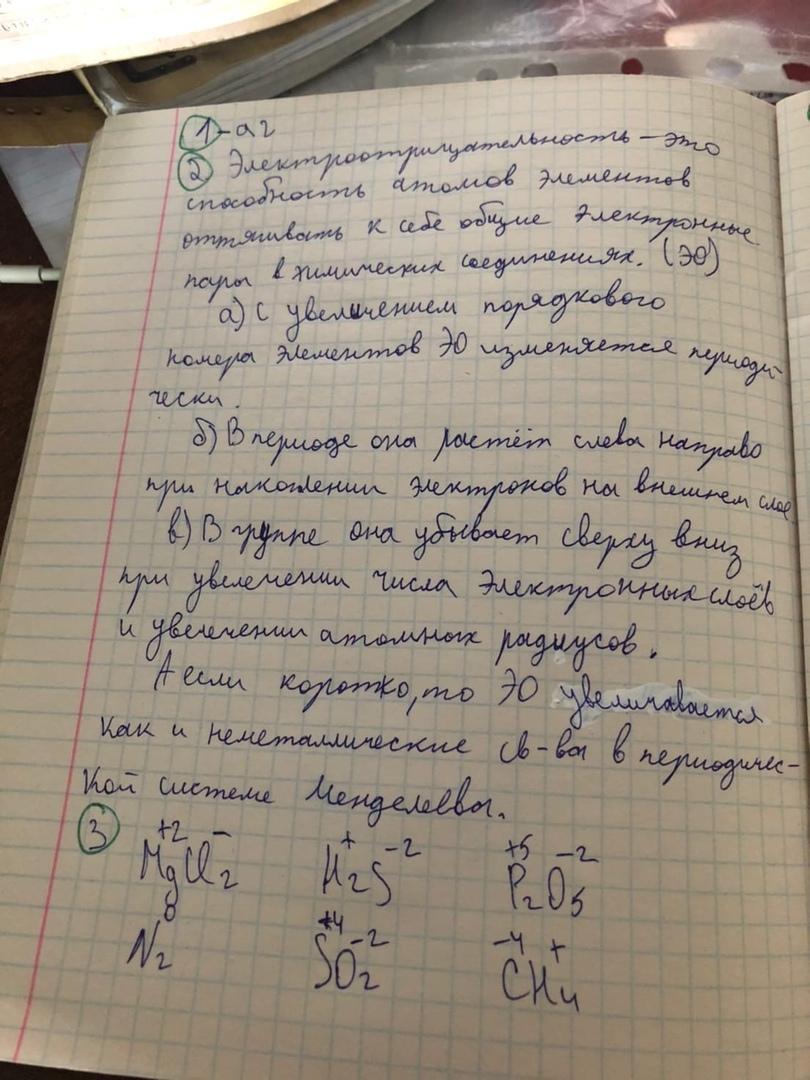 1-аг
2 Электроотрицательность – это
способность атомов элементов
оттягивать к себе общие электронные
пары в химических соединениях. (ЭО)
а) С увеличением порядкового
номера элементов ЭО изменяется периоди-
чески.
б) В периоде она растёт слева направо
при накоплении электронов на внешнем слое
в) В группе она убывает сверху вниз
при увелечении числа электронных слоёв
и увелечении атомных радиусов.
А если коротко, то ЭО увеличивается
как и неметаллические св-ва в периодичес-
кой системе Менделеева.
3
+2 – + -2 +5 -2
MgCl2 H2S P2O5
0 +4 -2 -4 +
N2 SO2 CH4